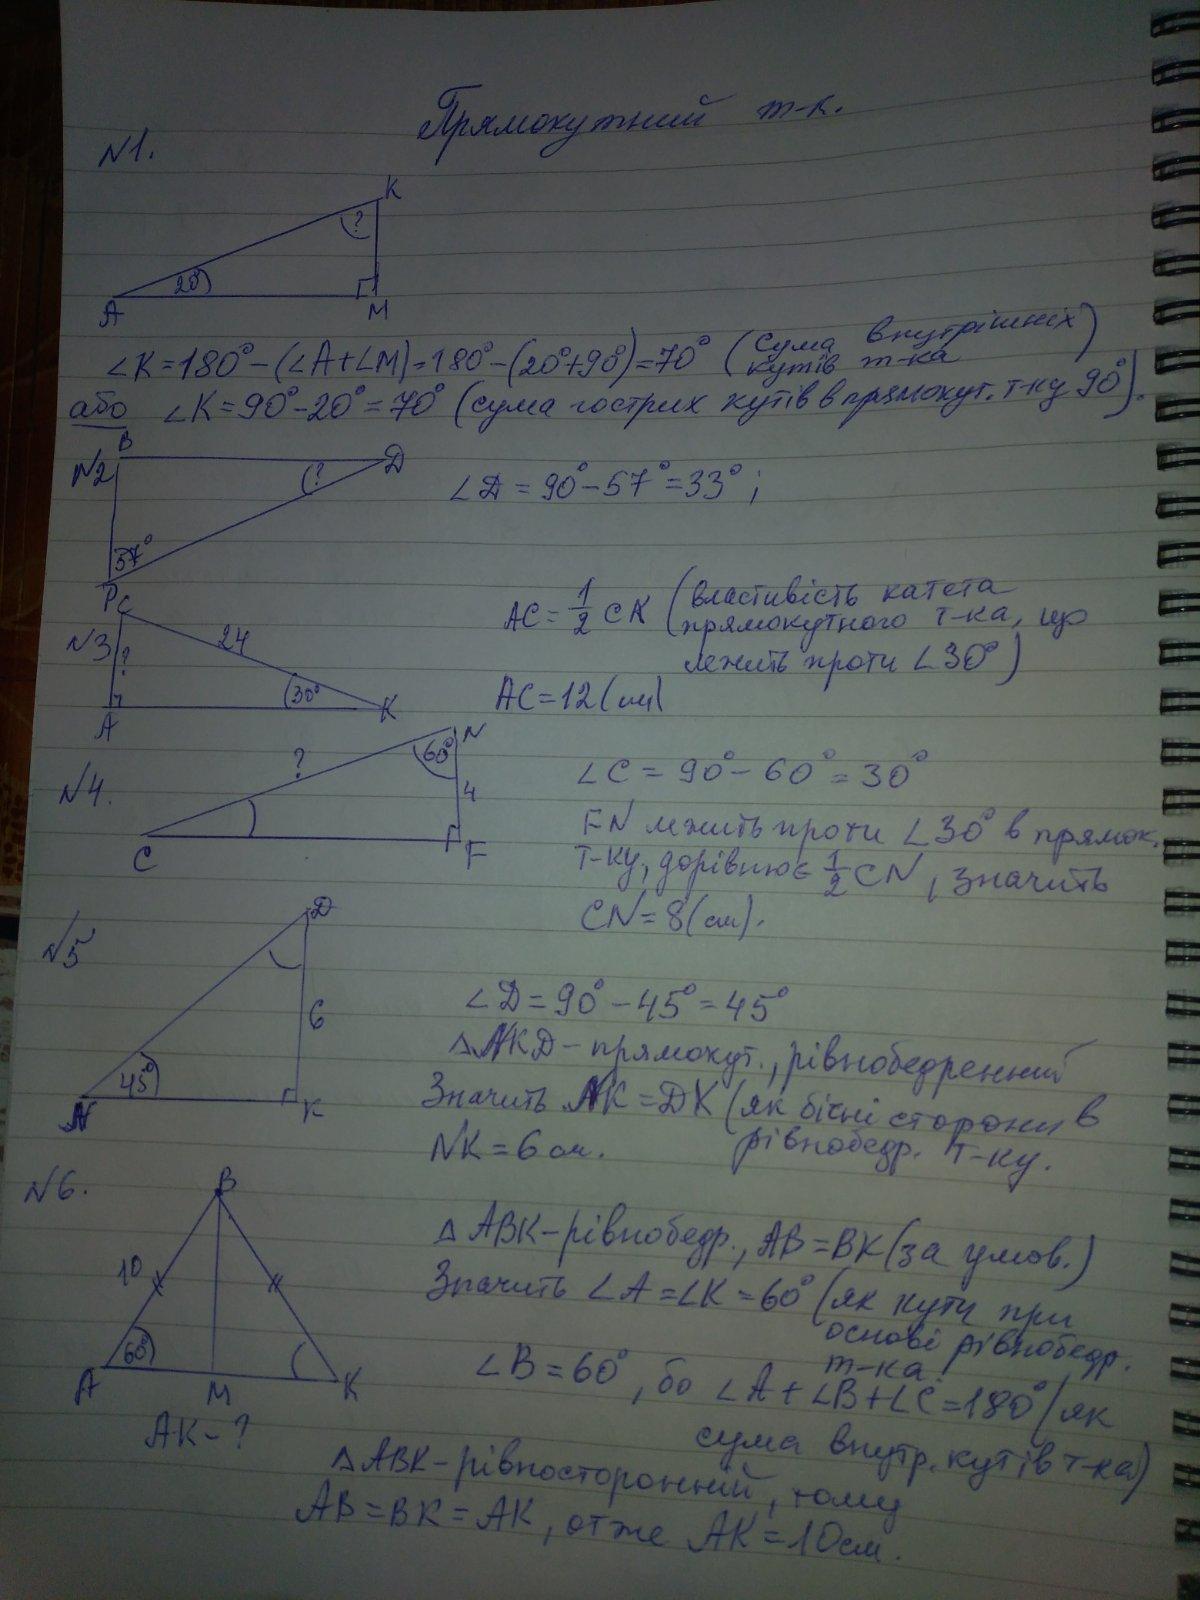 Прямокутний т-к.
N1.
K
?
20°
A
M
∠K=180°-(∠A+∠M)=180°-(20°+90°)=70° (сума внутрішніх
кутів т-ка)
або ∠K=90°-20°=70° (сума гострих кутів в прямокут. т-ку 90°).
B
N2
?
D
∠D=90°-57°=33°;
57°
P
C
N3
24
?
30°
A
K
AC=1/2 CK (властивість катета
прямокутного т-ка, що
лежить проти ∠30°)
AC=12(см)
N4.
?
N
60°
4
C
F
∠C=90°-60°=30°
FN лежить проти ∠30° в прямок.
т-ку, дорівнює 1/2 CN, значить
CN=8(см).
N5
D
6
45°
N
K
∠D=90°-45°=45°
△NKD-прямокут., рівнобедренний
Значить NK=DK (як бічні сторони в
рівнобедр. т-ку.
NK=6см.
N6.
B
10
60°
A
M
K
AK-?
△ABK-рівнобедр., AB=BK(за умов.)
Значить ∠A=∠K=60° (як кути при
основі рівнобедр.
т-ка.
∠B=60°, бо ∠A+∠B+∠C=180° (як
сума внутр. кутів т-ка)
△ABK-рівносторонній, тому
AB=BK=AK, отже AK=10см.